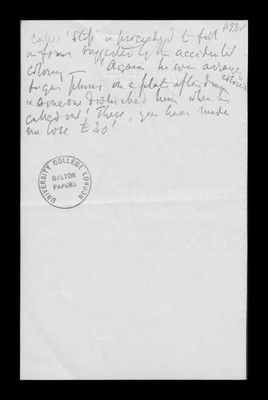 paper stops & proceeded to fall
on forms suggested by an accidental
colony — Again he was arranging
coloured
sugar plums on a plate after dinner
& someone disturbed him when he
called out! There, you have made
me lose £30!
UNIVERSITY COLLEGE LONDON
GALTON
PAPERS